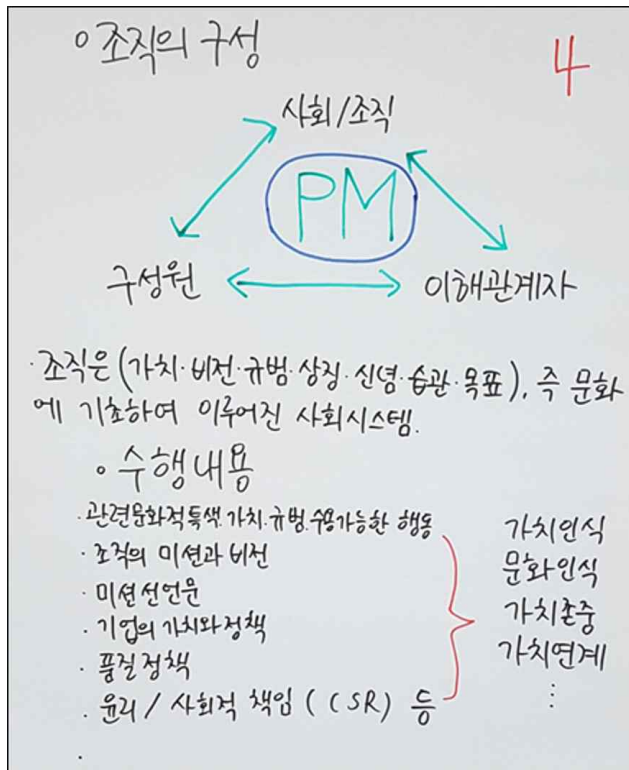 ○ 조직의 구성
4
사회/조직
PM
구성원
이해관계자
· 조직은 (가치·비전·규범·상징·신념·습관·목표), 즉 문화
에 기초하여 이루어진 사회시스템.
○ 수행내용
· 관련문화적특색. 가치·규범. 수용가능한 행동
· 조직의 미션과 비전
· 미션선언문
· 기업의 가치와 정책
· 품질정책
· 윤리 / 사회적 책임 (CSR) 등
·
가치인식
문화인식
가치존중
가치연계
⋮